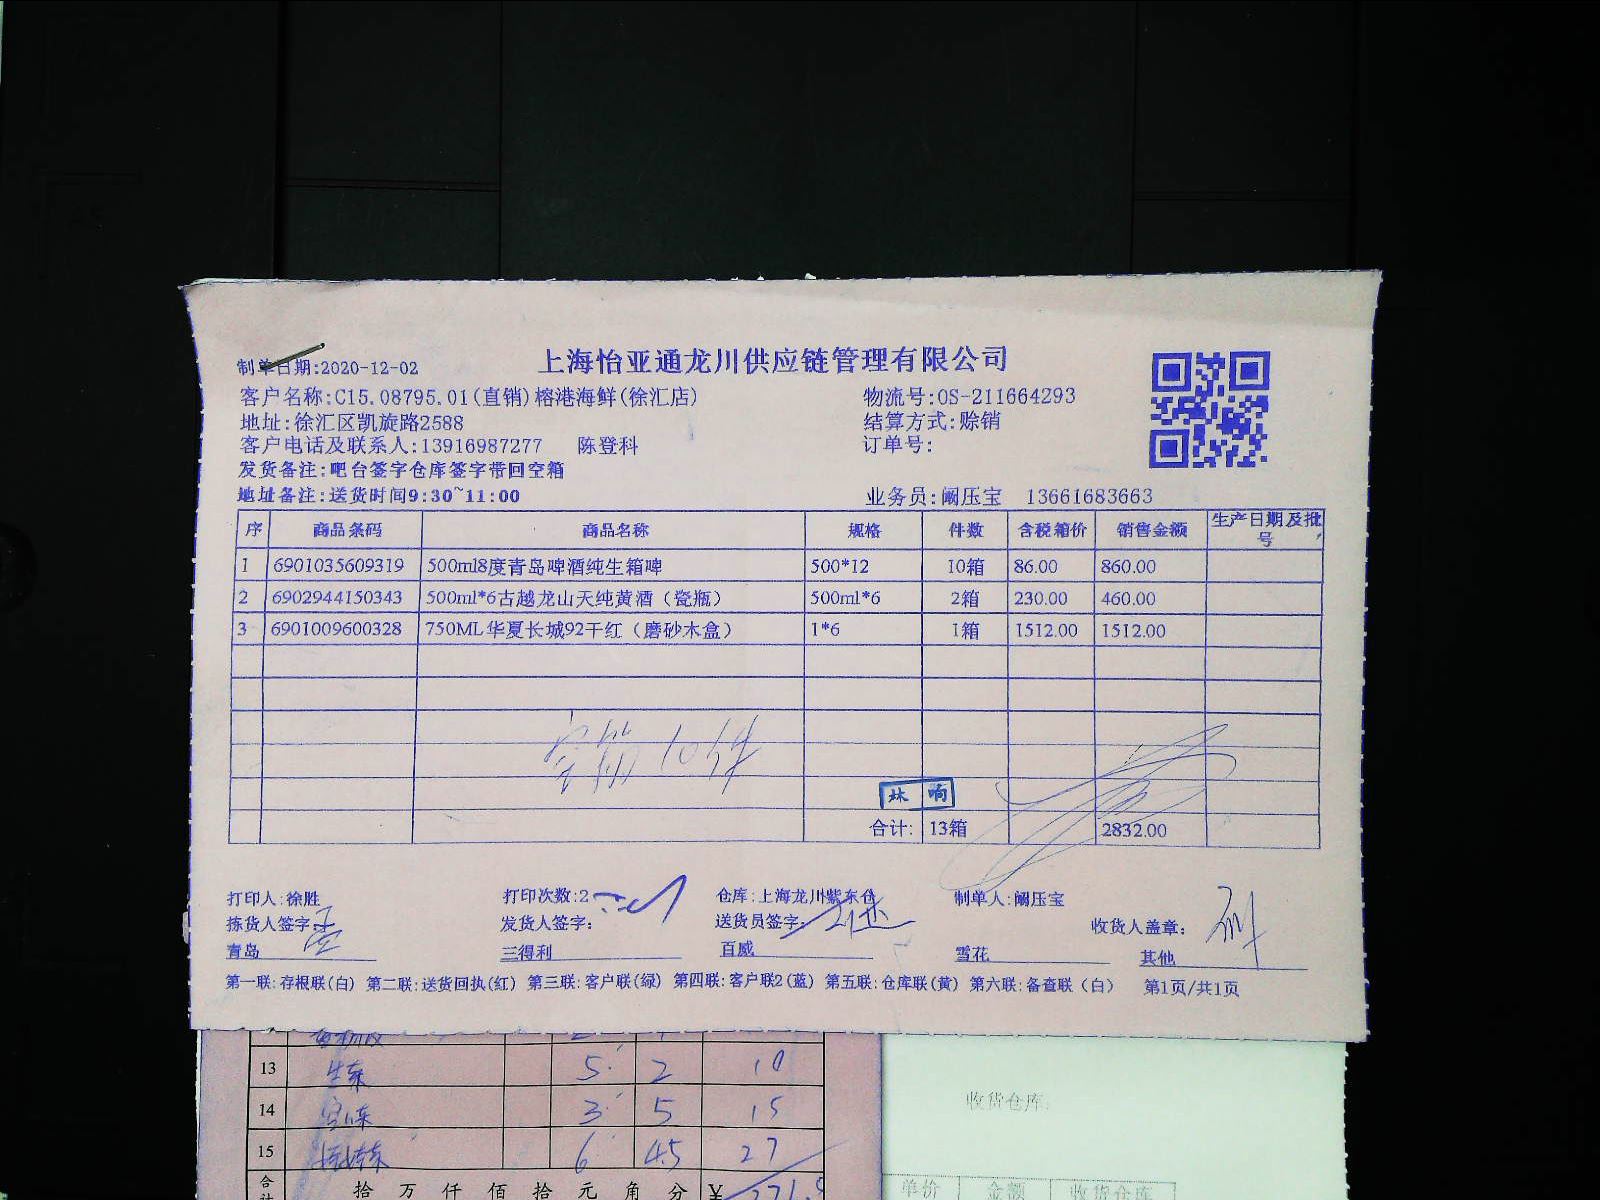 上海怡亚通龙川供应链管理有限公司
制单日期:2020-12-02
客户名称:C15.08795.01(直销)榕港海鲜(徐汇店) 物流号:OS-211664293
地址:徐汇区凯旋路2588 结算方式:赊销
客户电话及联系人:13916987277 陈登科 订单号:
发货备注:吧台签字仓库签字带回空箱
地址备注:送货时间9:30~11:00 业务员:阚压宝 13661683663
序 商品条码 商品名称 规格 件数 含税箱价 销售金额 生产日期及批号
1 6901035609319 500ml8度青岛啤酒纯生箱啤 500*12 10箱 86.00 860.00
2 6902944150343 500ml*6古越龙山天纯黄酒（瓷瓶） 500ml*6 2箱 230.00 460.00
3 6901009600328 750ML华夏长城92干红（磨砂木盒） 1*6 1箱 1512.00 1512.00
10件
响
合计: 13箱 2832.00
打印人:徐胜 打印次数:2 仓库:上海龙川紫东仓 制单人:阚压宝
拣货人签字: 发货人签字: 送货员签字: 收货人盖章:
青岛 三得利 百威 雪花 其他
第一联:存根联(白) 第二联:送货回执(红) 第三联:客户联(绿) 第四联:客户联2(蓝) 第五联:仓库联(黄) 第六联:备查联（白） 第1页/共1页
13 5 2 10
14 3 5 15
15 6 45 27
合计 拾 万 仟 佰 拾 元 角 分 ¥
收货仓库:
单价 金额 收货仓库